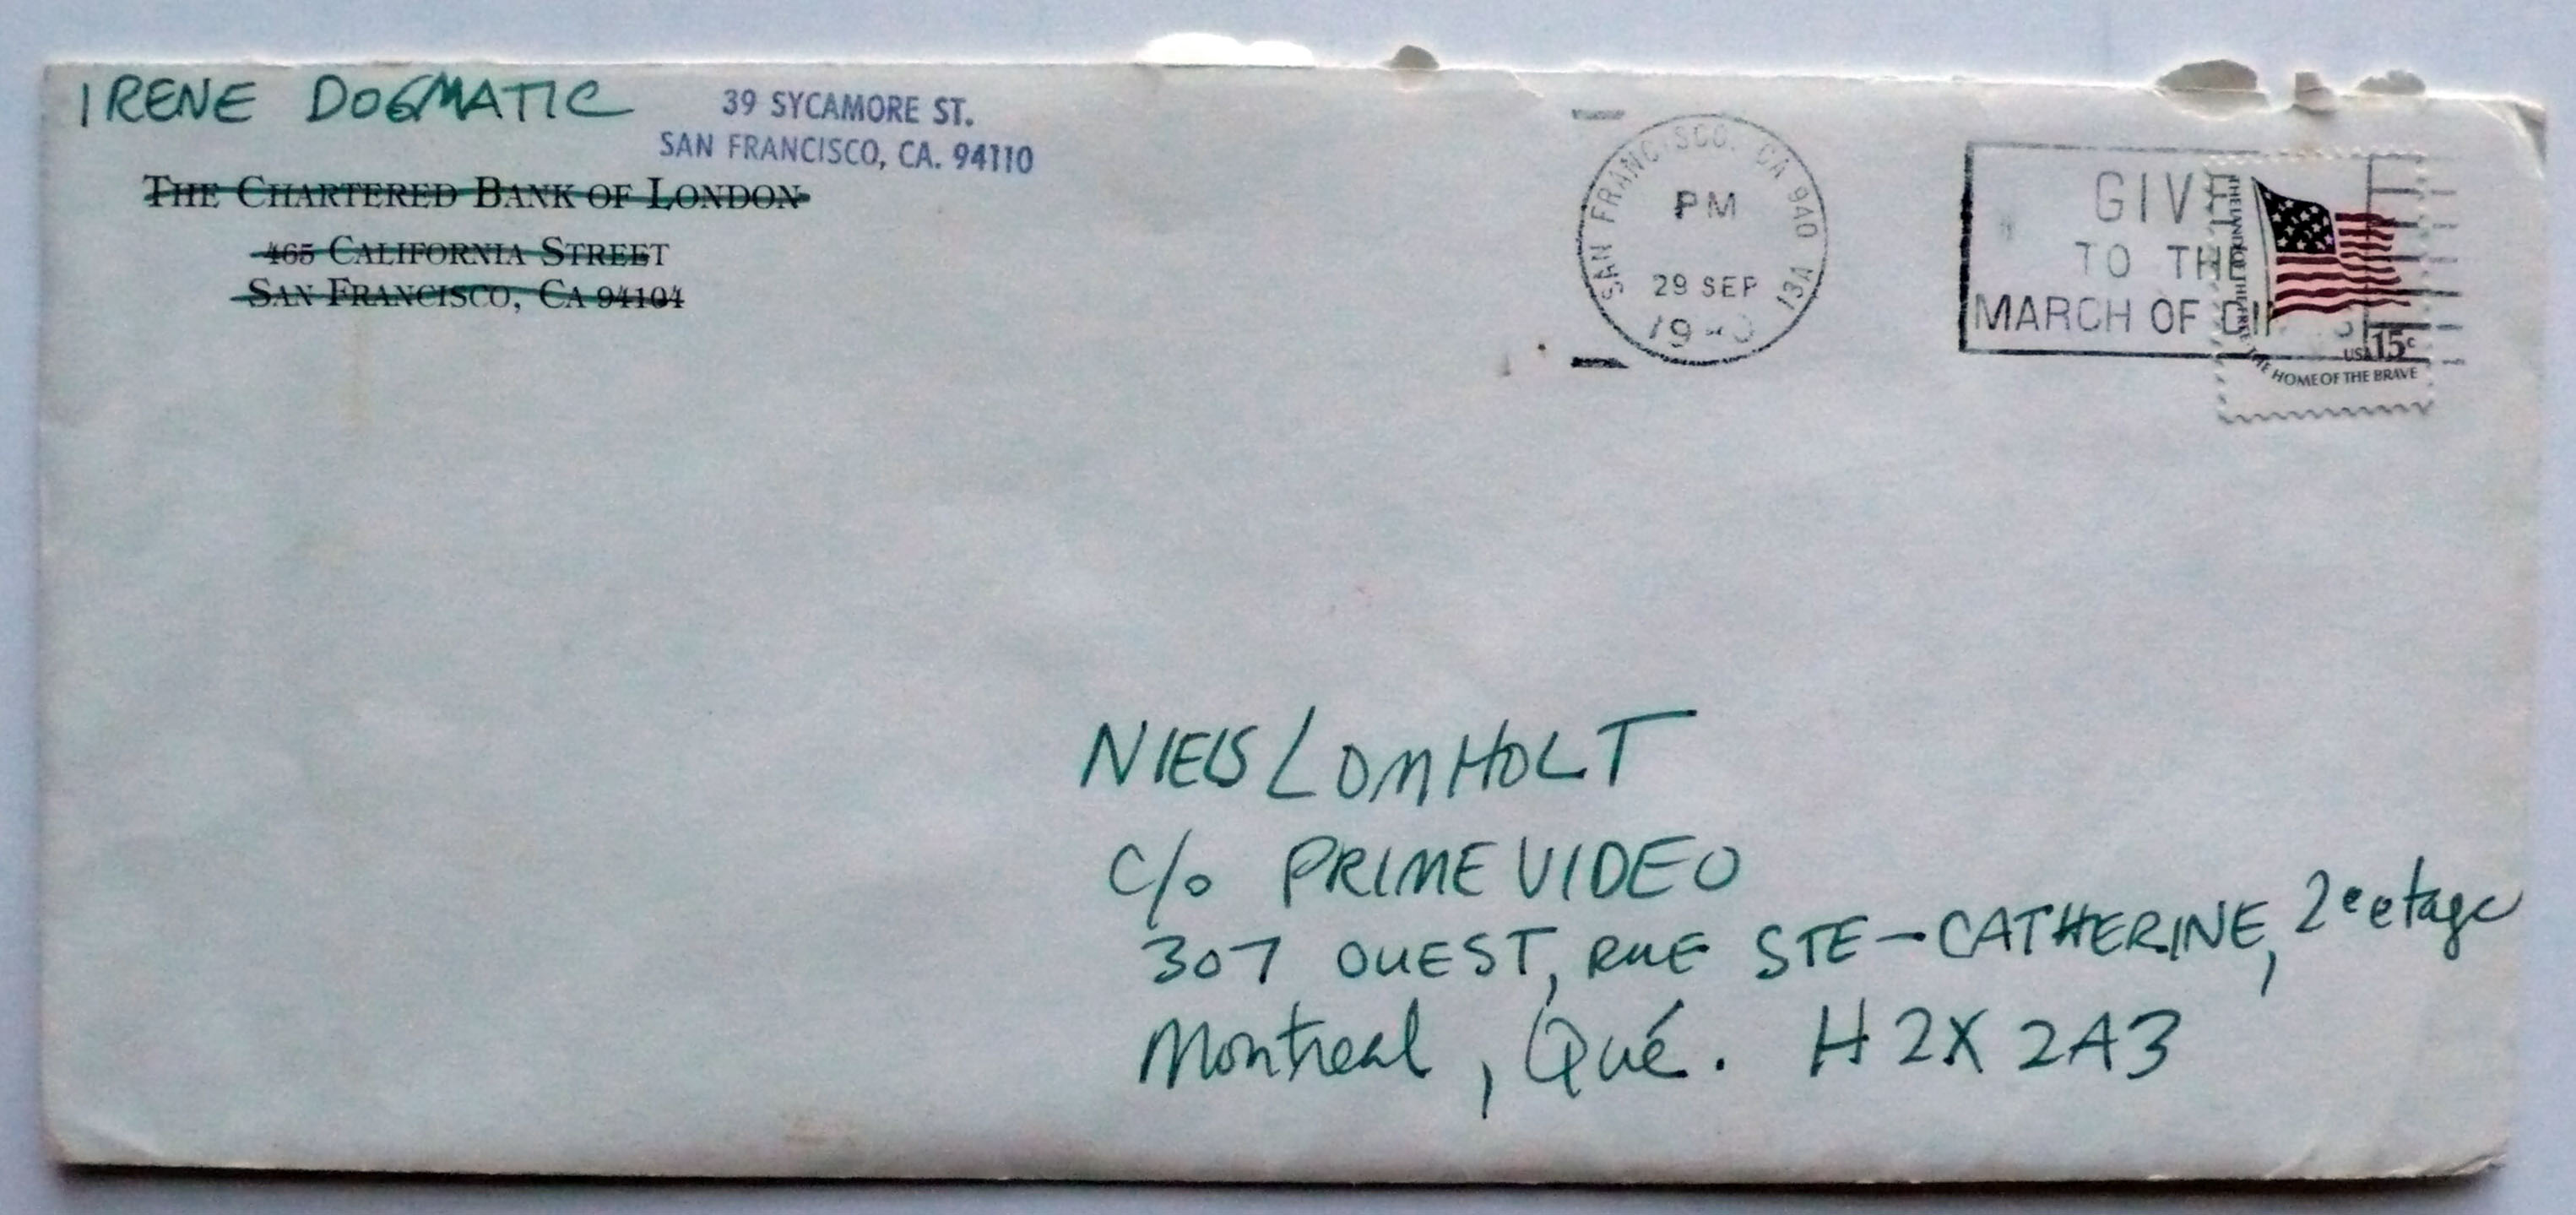 IRENE DOGMATIC
39 SYCAMORE ST.
SAN FRANCISCO, CA. 94110
THE CHARTERED BANK OF LONDON
465 CALIFORNIA STREET
SAN FRANCISCO, CA 94104
SAN FRANCISCO, CA 940
PM
29 SEP
13A
GIVE
TO THE
MARCH OF
THE LAND OF THE FREE THE HOME OF THE BRAVE
USA 15c
NIELS LOMHOLT
C/o PRIME VIDEO
307 OUEST, RUE STE-CATHERINE, 2e etage
Montreal, Qué. H2X 2A3